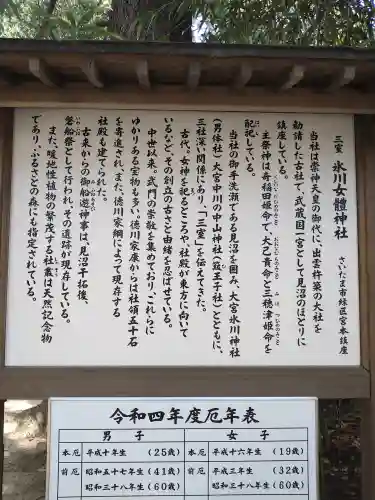 三室 氷川女體神社
さいたま市緑区宮本鎮座
当社は崇神天皇の御代に、出雲杵築の大社を
勧請した古社で、武蔵国一宮として見沼のほとりに
鎮座している。
主祭神は奇稲田姫命で、大己貴命と三穂津姫命を
配祀している。
当社の御手洗瀬である見沼を囲み、大宮氷川神社
(男体社)大宮中川の中山神社(簸王子社)とともに、
三社深い関係にあり、「三室」を伝えてきた。
古代。女神を祀るところや、社殿が東方に向いて
いるなど、その創立の古さと由緒を忍ばせている。
中世以来。武門の崇敬を集めており、これらに
ゆかりある宝物も多い。徳川家康からは社領五十石
を寄進され、また、徳川家綱によって現存する
社殿も建てられた。
古来からの御船遊神事は、見沼干拓後、
磐船祭として行われ、その遺跡が現存している。
また、暖地性植物の繁茂する社叢は天然記念物
であり、ふるさとの森にも指定されている。
令和四年度厄年表
男子 女子
本厄 平成十年生 (25歳) 本厄 平成十六年生 (19歳)
前厄 昭和五十七年生 (41歳) 前厄 平成三年生 (32歳)
昭和三十八年生 (60歳) 昭和三十八年生 (60歳)